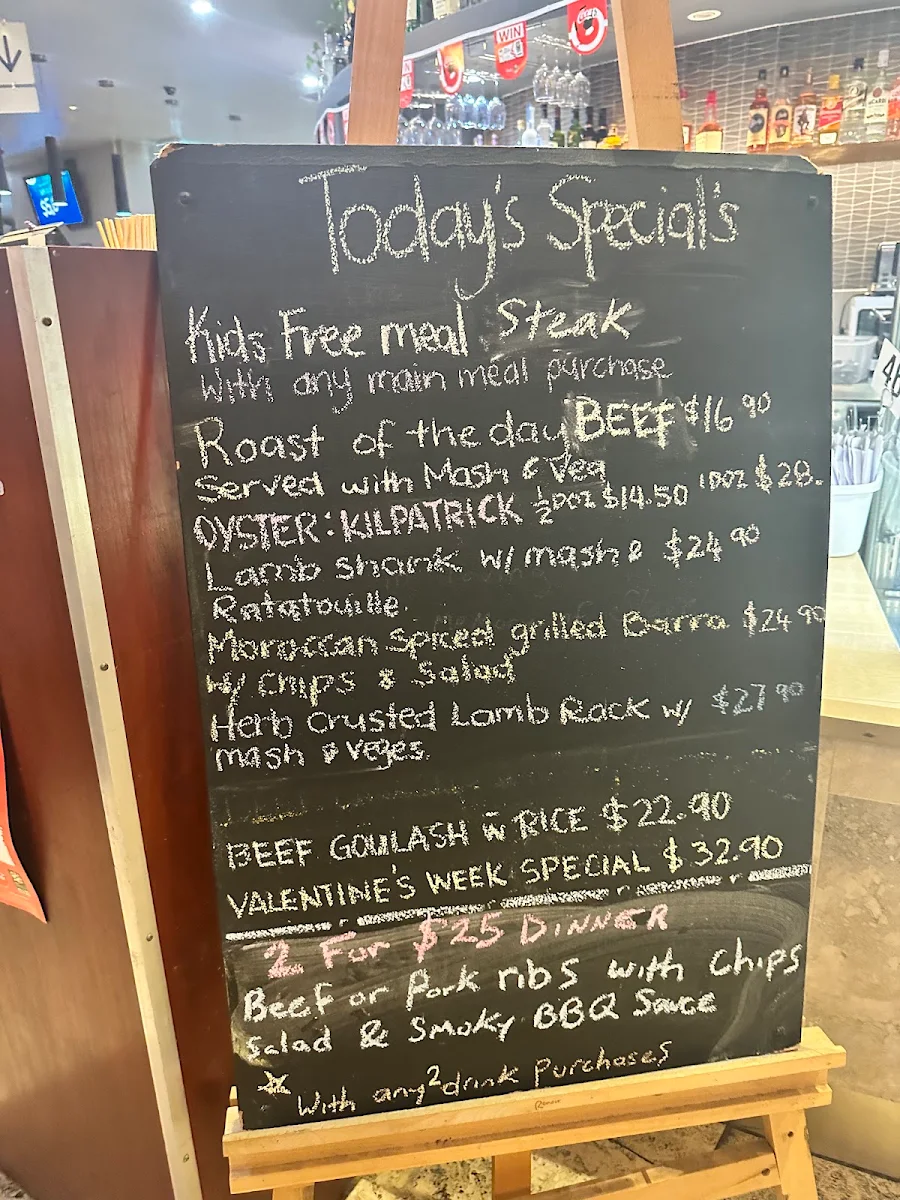 Today's Special's
Kids Free meal Steak
With any main meal purchase
Roast of the day BEEF $16.90
Served with Mash & Veg
OYSTER: KILPATRICK ½ DOZ $14.50 1DOZ $28.
Lamb shank w/ mash & $24.90
Ratatouille.
Moroccan Spiced grilled Barra $24.90
w/ chips & Salad
Herb Crusted Lamb Rack w/ $27.90
mash & veges.
BEEF GOULASH w RICE $22.90
VALENTINE'S WEEK SPECIAL $32.90
2 For $25 DINNER
Beef or Pork ribs with Chips
Salad & Smoky BBQ Sauce
With any 2 drink Purchases
WIN